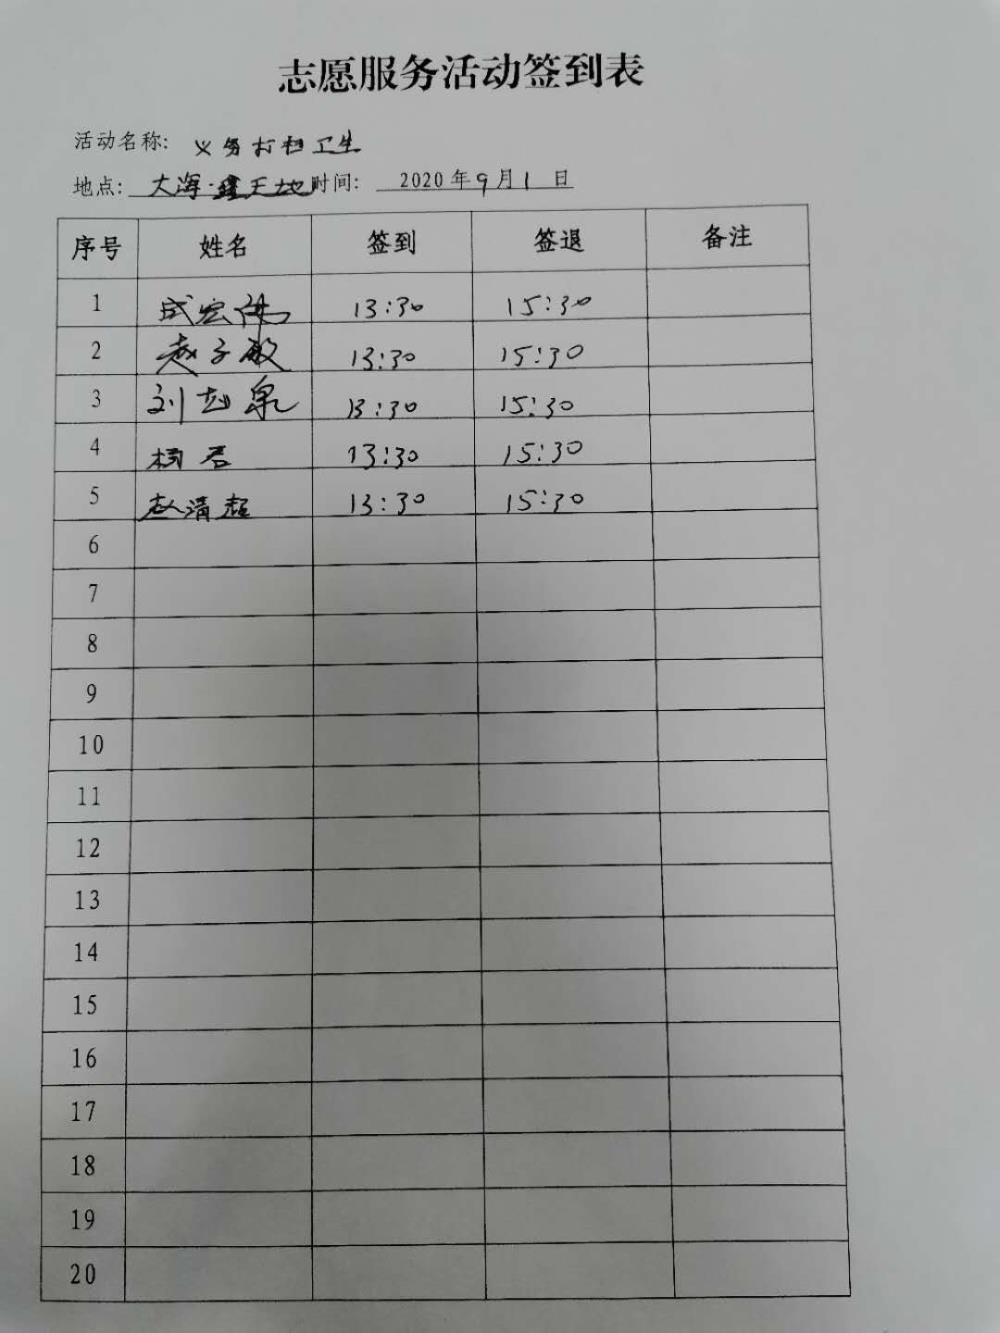 志愿服务活动签到表
活动名称: 义务打扫卫生
地点: 大海·鑫天地 时间: 2020年9月1日
序号 姓名 签到 签退 备注
1 成宏伟 13:30 15:30
2 赵子敏 13:30 15:30
3 刘志泉 13:30 15:30
4 杨君 13:30 15:30
5 赵清超 13:30 15:30
6
7
8
9
10
11
12
13
14
15
16
17
18
19
20